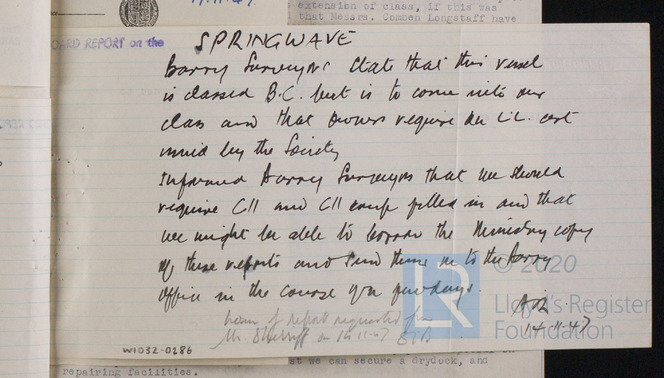 11.47
extension of class, if this was
that Messrs. Comben Longstaff have
BOARD REPORT on the
SPRINGWAVE
Barry Surveyors state that this vessel
is classed B.C. but is to come into our
class and that owners require an LL. cert
issued by the Society
Informed Barry Surveyors that we should
require C11 and C11 comp filled in and that
we might be able to borrow the Ministry copy
of these reports and send them on to the Barry
office in the course of a few days.
© 2020
LR
Lloyd's Register
Foundation
ADR
14.11.47
of report requested from
Mr. on 14.11.47
W1032-0286
we can secure a drydock, and
repairing facilities.